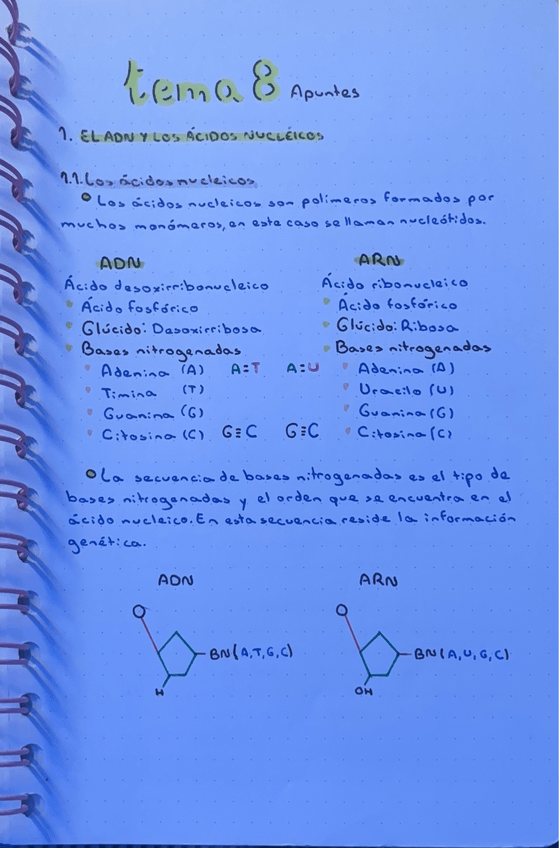 tema 8 Apuntes
1. EL ADN Y LOS ÁCIDOS NUCLÉICOS
1.1. Los ácidos nucleicos
Los ácidos nucleicos son polímeros formados por
muchos monómeros, en este caso se llaman nucleótidos.
ADN
Ácido desoxirribonucleico
Ácido fosfórico
Glúcido: Desoxirribosa
Bases nitrogenadas
Adenina (A) A=T
Timina (T)
Guanina (G)
Citosina (C) G≡C
ARN
Ácido ribonucleico
Ácido fosfórico
Glúcido: Ribosa
Bases nitrogenadas
A=U Adenina (A)
Uracilo (U)
Guanina (G)
G≡C Citosina (C)
La secuencia de bases nitrogenadas es el tipo de
bases nitrogenadas y el orden que se encuentra en el
ácido nucleico. En esta secuencia reside la información
genética.
ADN
BN (A, T, G, C)
H
ARN
BN (A, U, G, C)
OH